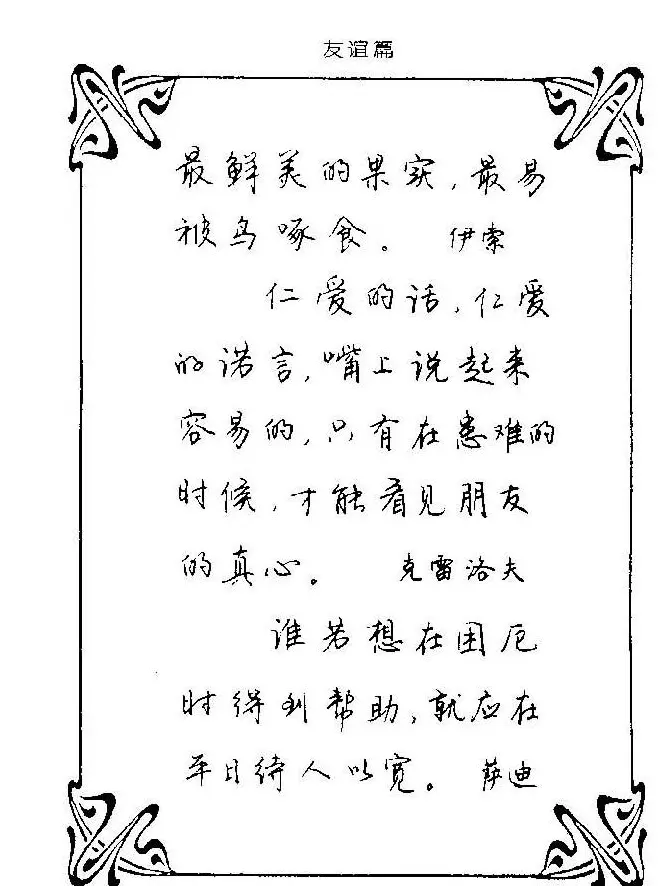 友谊篇
最鲜美的果实，最易
被鸟啄食。 伊索
仁爱的话，仁爱
的诺言，嘴上说起来
容易的，只有在患难的
时候，才能看见朋友
的真心。 克雷洛夫
谁若想在困厄
时得到帮助，就应在
平日待人以宽。 萨迪